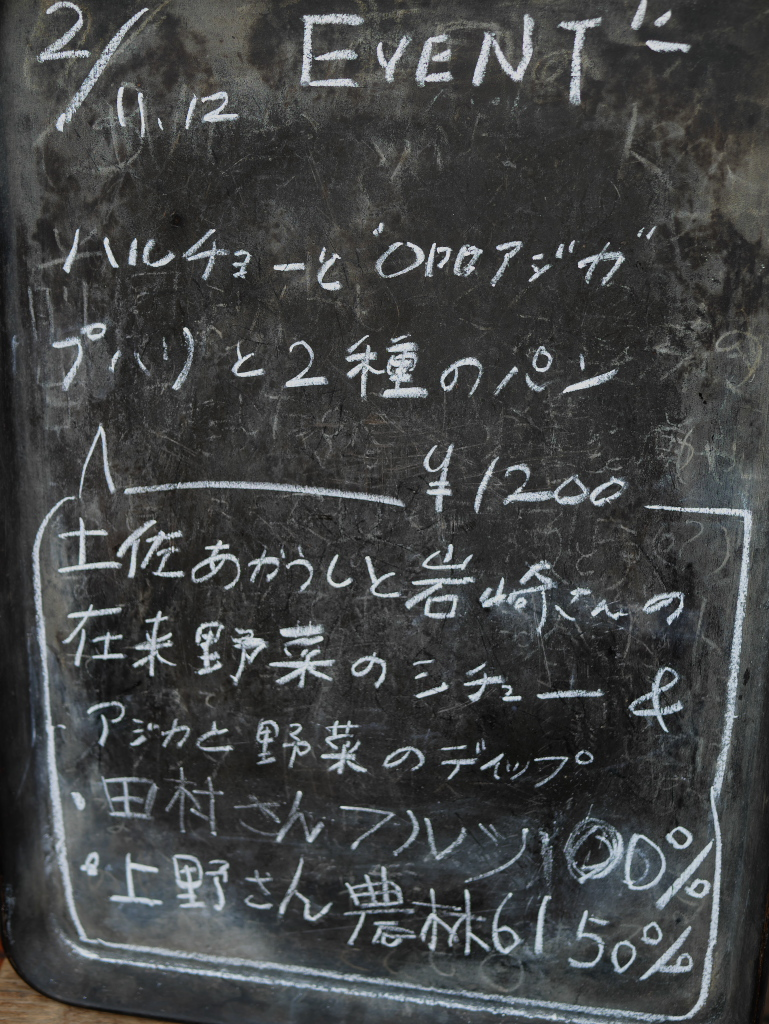 2/11.12 EVENT
ハルチョーと"OPAアジカ"
プハリと2種のパン
¥1200
土佐あかうしと岩崎さんの
在来野菜のシチュー &
アジカと野菜のディップ
・田村さんフルレツ 100%
・上野さん農林61 50%